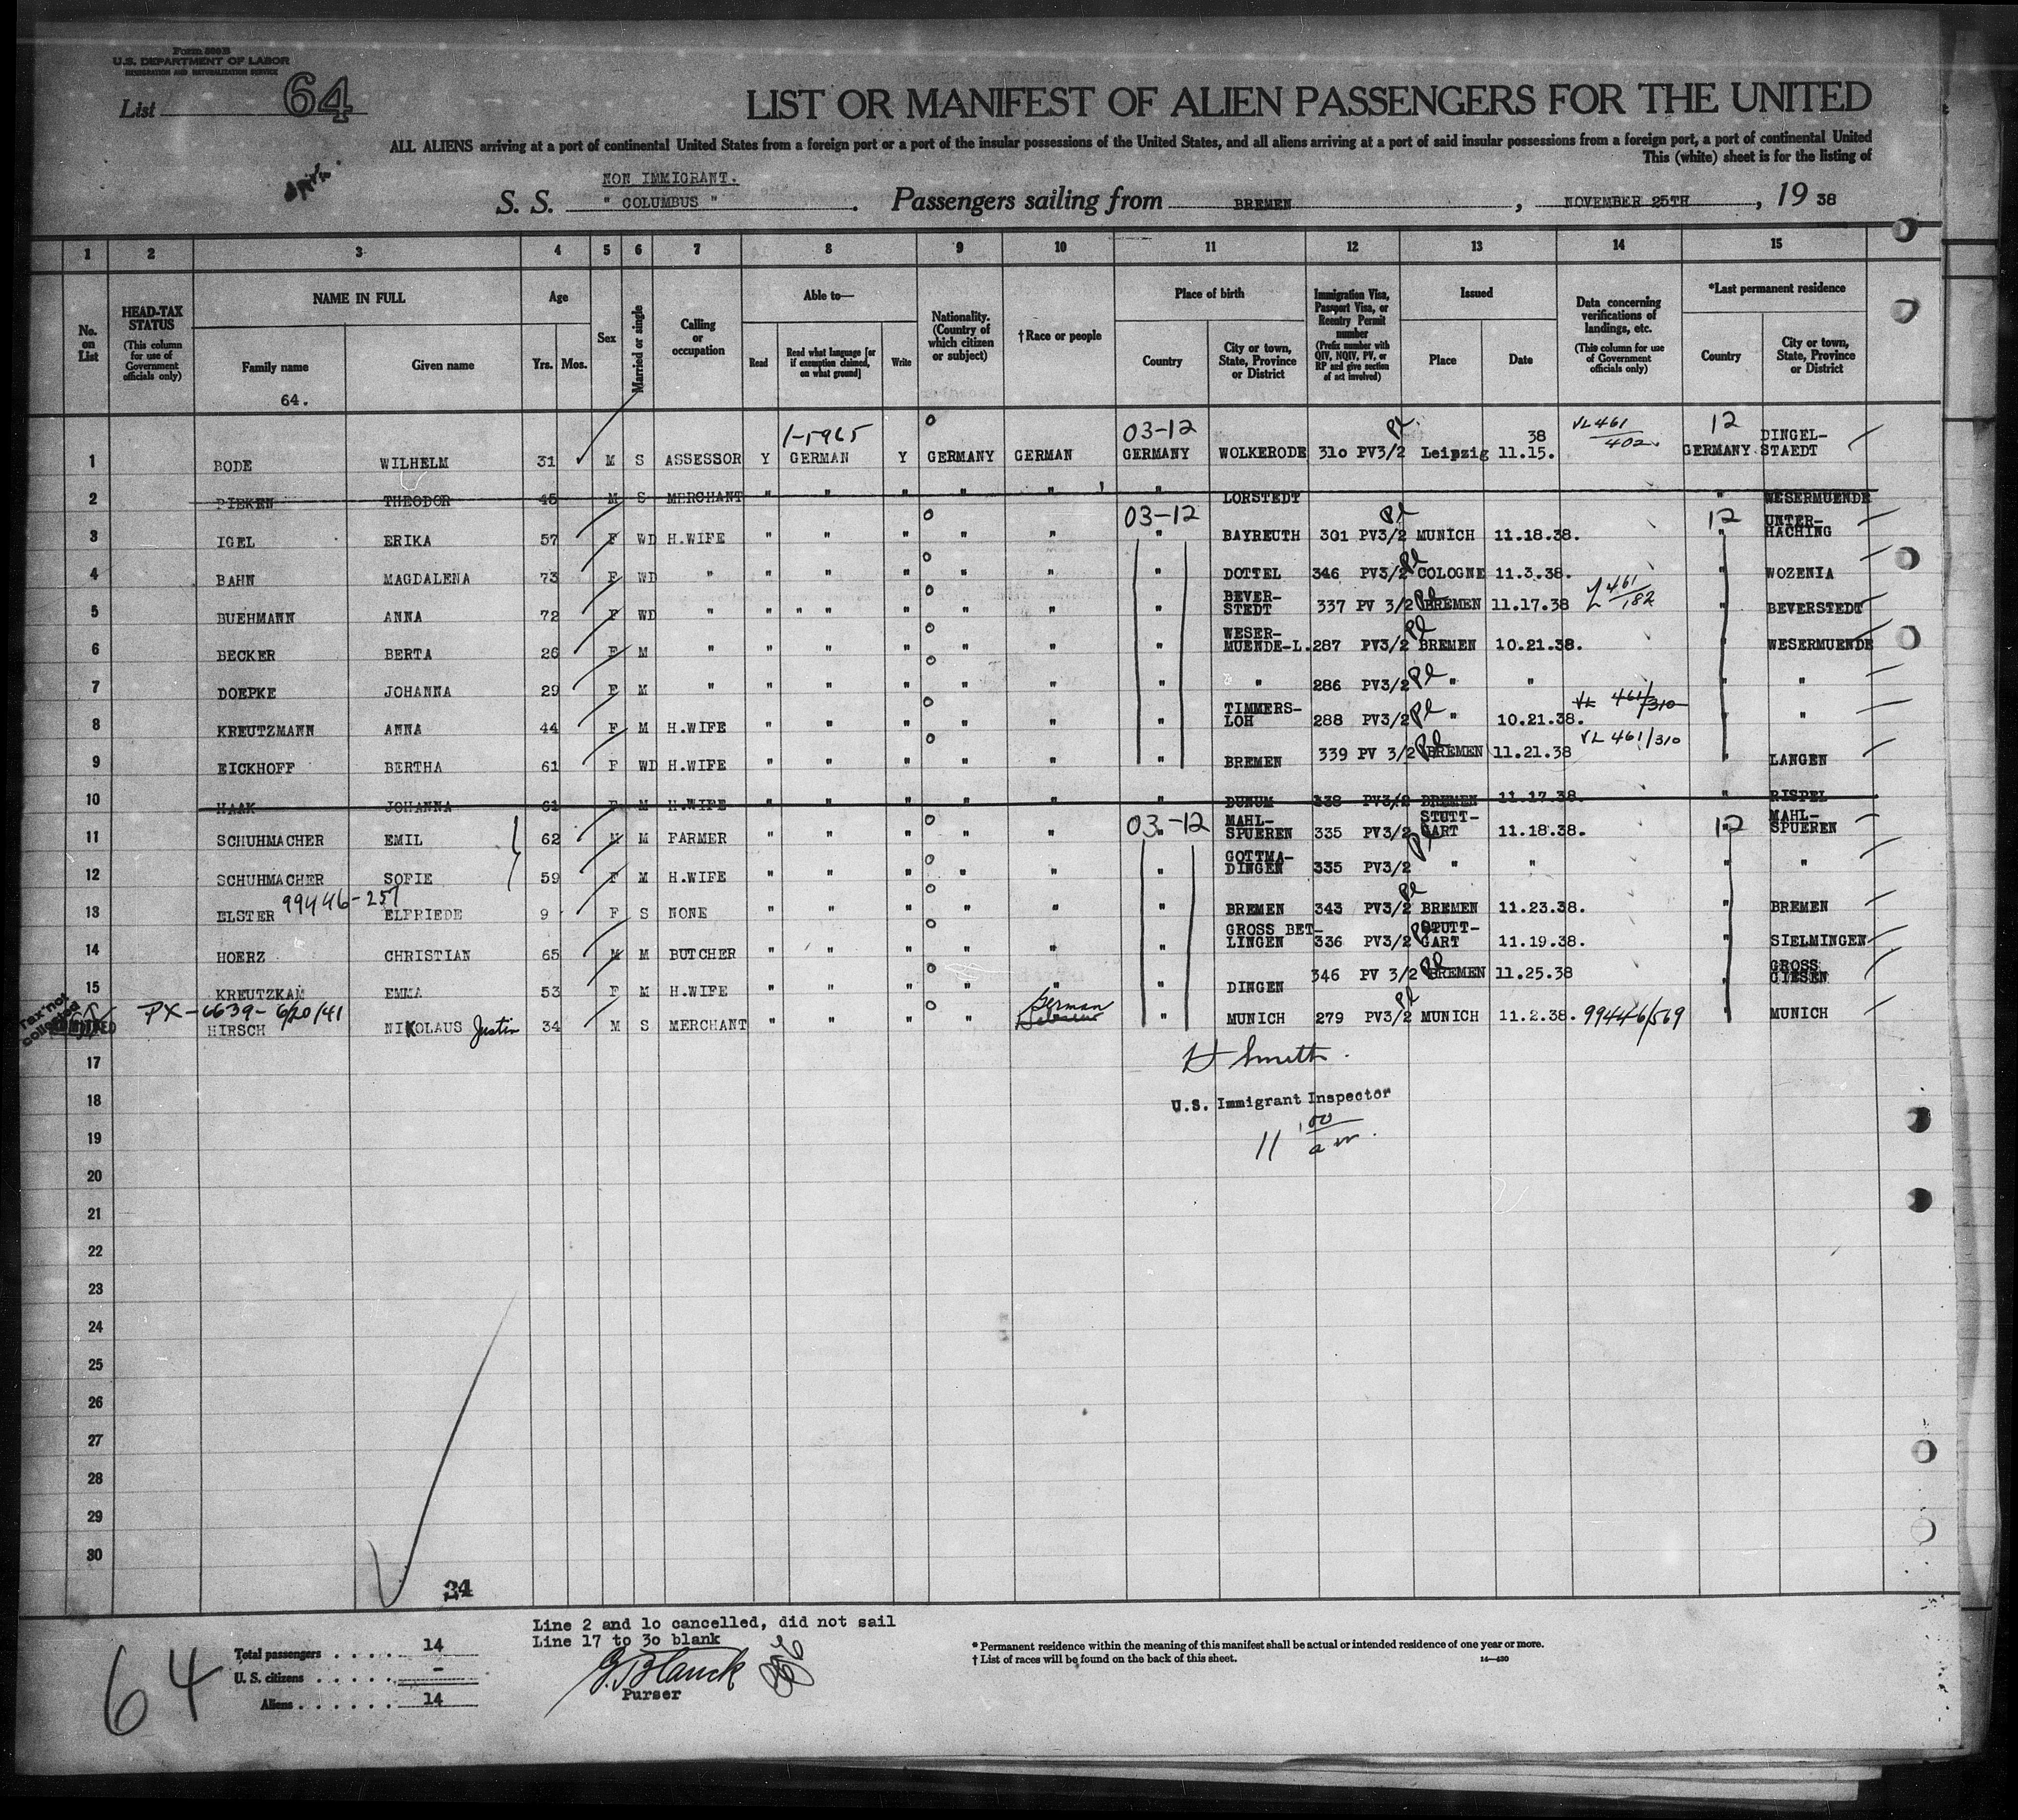 Form 500B
U.S. DEPARTMENT OF LABOR
IMMIGRATION AND NATURALIZATION SERVICE
List 64
LIST OR MANIFEST OF ALIEN PASSENGERS FOR THE UNITED
ALL ALIENS arriving at a port of continental United States from a foreign port or a port of the insular possessions of the United States, and all aliens arriving at a port of said insular possessions from a foreign port, a port of continental United
This (white) sheet is for the listing of
NON IMMIGRANT.
S. S. " COLUMBUS ". Passengers sailing from BREMEN, NOVEMBER 25TH, 19 38
1 2 3 4 5 6 7 8 9 10 11 12 13 14 15
No. on List
HEAD-TAX STATUS (This column for use of Government officials only)
NAME IN FULL
Family name Given name
64.
Age
Yrs. Mos.
Sex
Married or single
Calling or occupation
Able to—
Read Read what language [or if exemption claimed, on what ground] Write
Nationality. (Country of which citizen or subject)
†Race or people
Place of birth
Country City or town, State, Province or District
Immigration Visa, Passport Visa, or Reentry Permit number (Prefix number with QIV, NQIV, PV, or RP and give section of act involved)
Issued
Place Date
Data concerning verifications of landings, etc. (This column for use of Government officials only)
*Last permanent residence
Country City or town, State, Province or District
1-5965 03-12 38 VL 461/402 12
1 BODE WILHELM 31 M S ASSESSOR Y GERMAN Y GERMANY GERMAN GERMANY WOLKERODE 310 PV3/2 Leipzig 11.15. GERMANY DINGEL-STAEDT
2 PIEKEN THEODOR 45 M S MERCHANT " " " " " " LORSTEDT " WESERMUENDE
03-12 12
3 IGEL ERIKA 57 F WD H.WIFE " " " " " " BAYREUTH 301 PV3/2 MUNICH 11.18.38. " UNTER-HACHING
4 BAHN MAGDALENA 73 F WD " " " " " " " DOTTEL 346 PV3/2 COLOGNE 11.3.38. " WOZENIA
5 BUEHMANN ANNA 72 F WD " " " " " " " " BEVER-STEDT 337 PV 3/2 BREMEN 11.17.38 461/182 " BEVERSTEDT
6 BECKER BERTA 26 F M " " " " " " " WESER-MUENDE-L. 287 PV3/2 BREMEN 10.21.38. " WESERMUENDE
7 DOEPKE JOHANNA 29 F M " " " " " " " " 286 PV3/2 " " " "
8 KREUTZMANN ANNA 44 F M H.WIFE " " " " " " TIMMERS-LOH 288 PV3/2 " 10.21.38. VL 461/310 " "
9 EICKHOFF BERTHA 61 F WD H.WIFE " " " " " " BREMEN 339 PV 3/2 BREMEN 11.21.38 VL 461/310 " LANGEN
10 HAAK JOHANNA 61 F M H.WIFE " " " " " " DUNUM 338 PV3/2 BREMEN 11.17.38. " RISPEL
03-12 12
11 SCHUHMACHER EMIL 62 M M FARMER " " " " " " MAHL-SPUEREN 335 PV3/2 STUTT-GART 11.18.38. " MAHL-SPUEREN
12 SCHUHMACHER SOFIE 59 F M H.WIFE " " " " " " GOTTMA-DINGEN 335 PV3/2 " " " "
99446-257
13 ELSTER ELFRIEDE 9 F S NONE " " " " " " BREMEN 343 PV3/2 BREMEN 11.23.38. " BREMEN
14 HOERZ CHRISTIAN 65 M M BUTCHER " " " " " " GROSS BET-LINGEN 336 PV3/2 STUTT-GART 11.19.38. " SIELMINGEN
15 KREUTZKAM EMMA 53 F M H.WIFE " " " " " " DINGEN 346 PV 3/2 BREMEN 11.25.38 " GROSS GIESEN
Tax not collected PX-6639-6/20/41 German
HIRSCH NIKOLAUS Justin 34 M S MERCHANT " " " " " MUNICH 279 PV3/2 MUNICH 11.2.38. 99446/569 " MUNICH
17
H Smith.
18
U.S. Immigrant Inspector
19
11 00 a m.
20
21
22
23
24
25
26
27
28
29
30
34
Line 2 and 10 cancelled, did not sail
Line 17 to 30 blank
64
Total passengers . . . . 14
U. S. citizens . . . . . -
Aliens . . . . . . 14
G. Blanck
Purser
* Permanent residence within the meaning of this manifest shall be actual or intended residence of one year or more.
† List of races will be found on the back of this sheet.
14—430